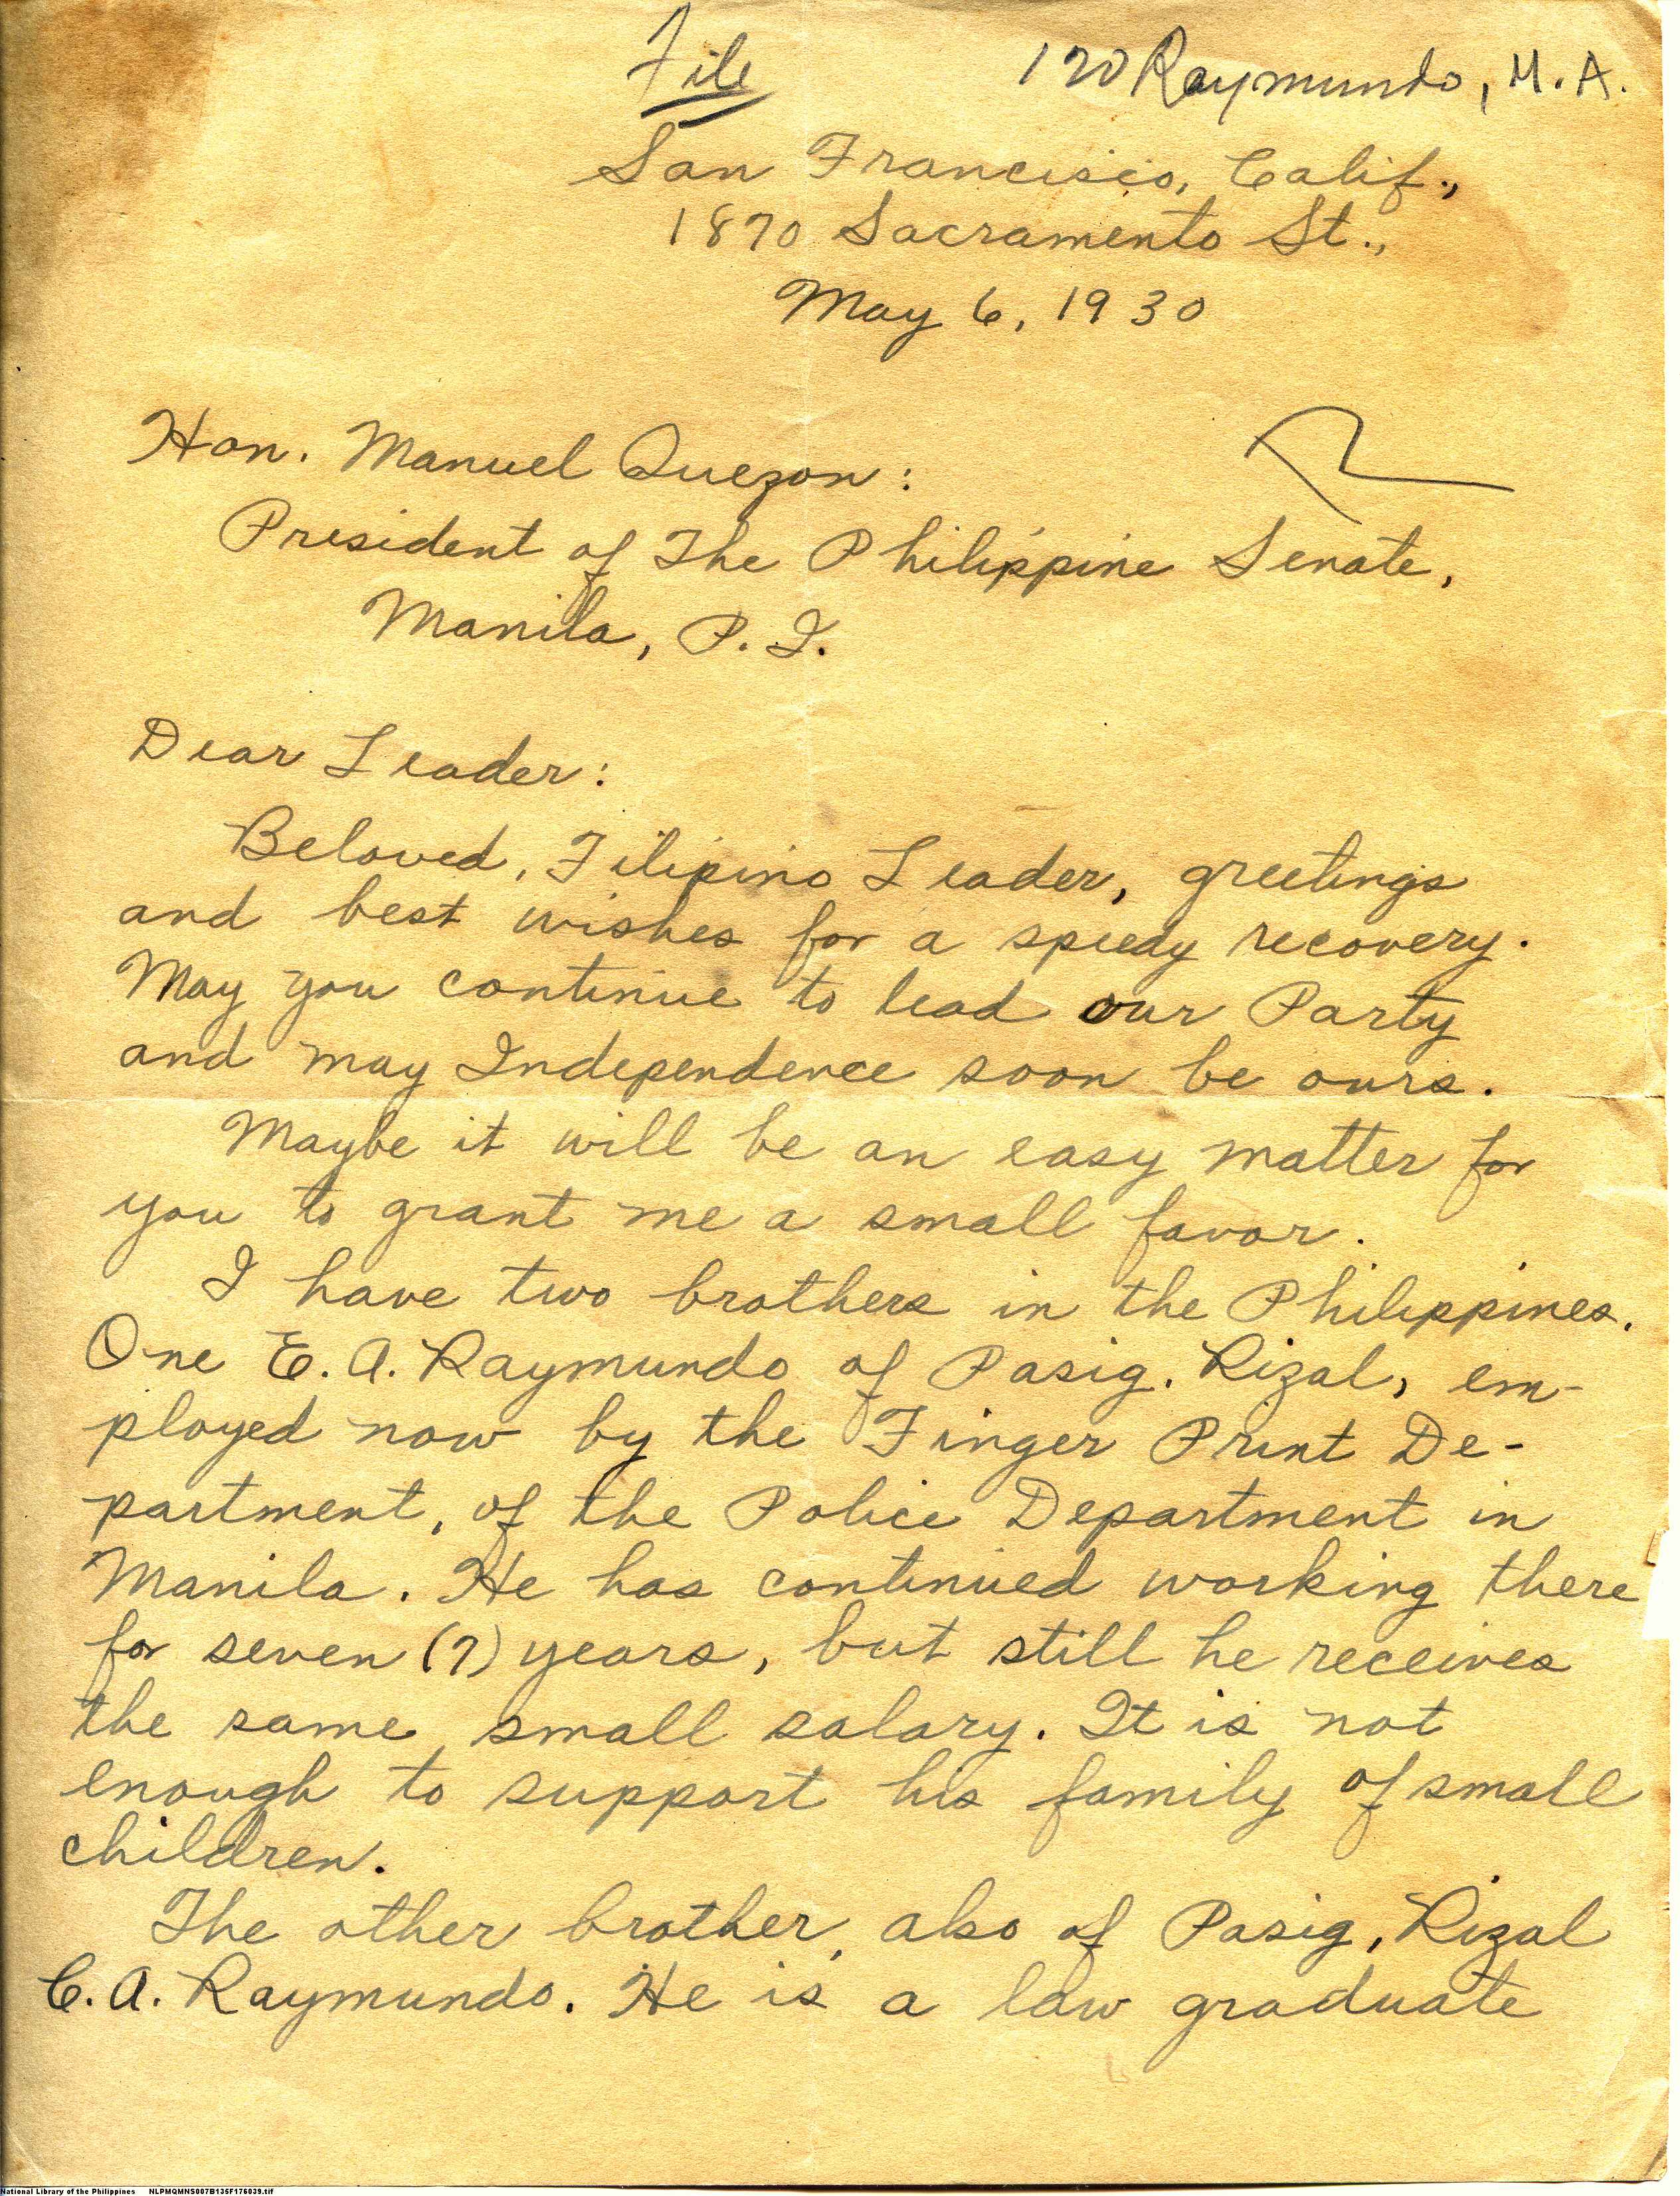 File
120 Raymundo, M.A.
San Francisco, Calif.,
1870 Sacramento St.,
May 6, 1930
Hon. Manuel Quezon:
President of The Philippine Senate,
Manila, P. I.
Dear Leader:
Beloved, Filipino Leader, greetings
and best wishes for a speedy recovery.
May you continue to lead our Party
and may Independence soon be ours.
Maybe it will be an easy matter for
you to grant me a small favor.
I have two brothers in the Philippines.
One E. A. Raymundo of Pasig, Rizal, em-
ployed now by the Finger Print De-
partment, of the Police Department in
Manila. He has continued working there
for seven (7) years, but still he receives
the same small salary. It is not
enough to support his family of small
children.
The other brother, also of Pasig, Rizal
C. A. Raymundo. He is a law graduate
National Library of the Philippines NLPMQMNS007B136F176039.tif